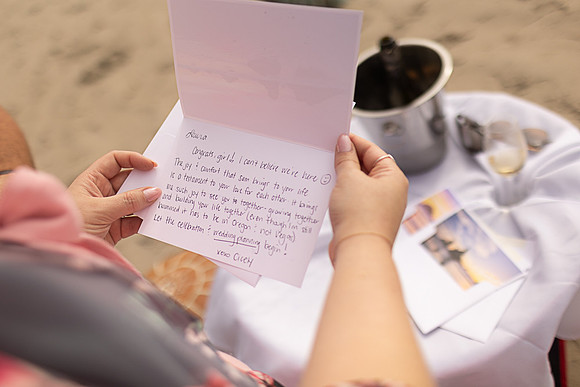 Laura
Congrats girl! I can't believe we're here ☺
The joy & comfort Sam brings to your life
is a testament to your love for each other. It brings
us such joy to see you two together growing together
and building your life together (even though I'm still
bummed it has to be in Oregon & not Vegas)
Let the celebration & wedding planning begin!
xoxo